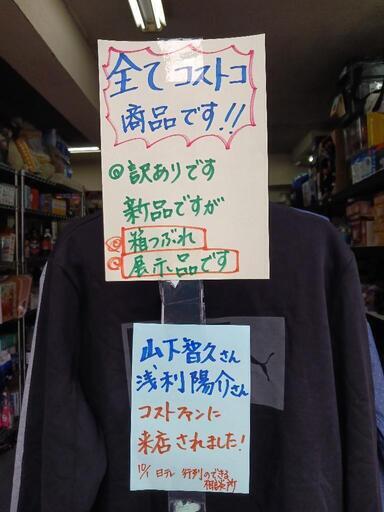 全てコストコ
商品です!!
@訳ありです
新品ですが
◎箱つぶれ
◎展示品です
山下智久さん
浅利陽介さん
コストファンに
来店されました!
10/1 日テレ 行列のできる
相談所